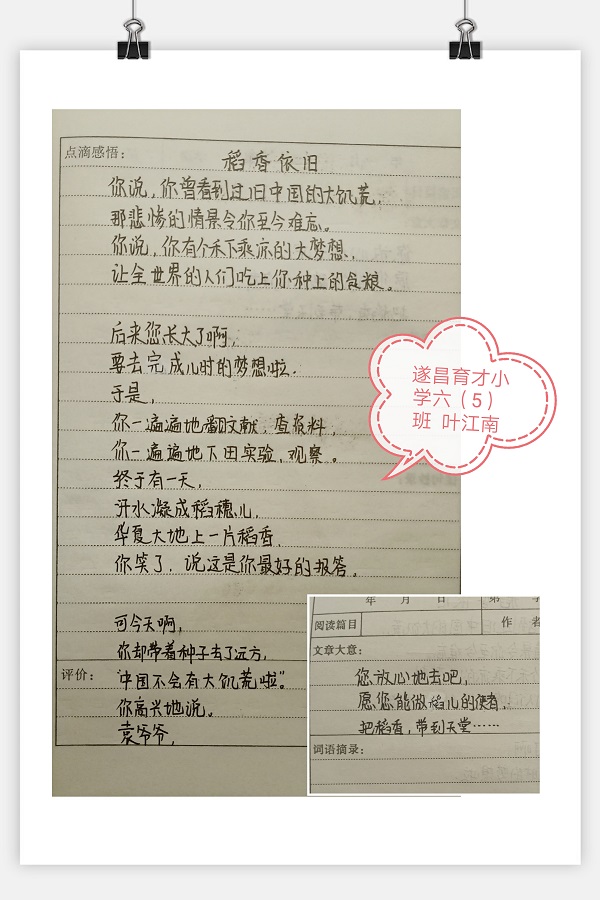 点滴感悟：
稻香依旧
你说，你曾看到过旧中国的大饥荒，
那悲惨的情景令你至今难忘。
你说，你有个禾下乘凉的大梦想，
让全世界的人们吃上你种上的食粮。
后来您长大了啊，
要去完成儿时的梦想啦．
于是，
你一遍遍地翻文献，查资料，
你一遍遍地下田实验，观察。
终于有一天，
汗水凝成稻穗儿，
华夏大地上一片稻香，
你笑了，说这是你最好的报答。
可今天啊，
你却带着种子去了远方，
评价：
“中国不会有大饥荒啦”。
你高兴地说。
袁爷爷，
遂昌育才小
学六（5）
班 叶江南
年 月 日 第
阅读篇目
作 者
文章大意：
您放心地去吧，
愿您能做稻儿的使者，
把稻香，带到天堂……
词语摘录：